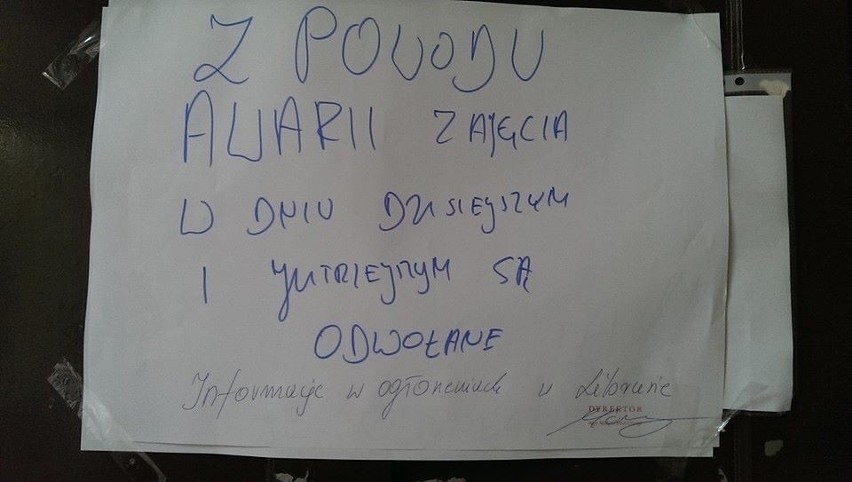 Z POWODU
AWARII ZAJĘCIA
W DNIU DZISIEJSZYM
I JUTRZEJSZYM SĄ
ODWOŁANE
Informacje w ogłoszeniach w Librusie
DYREKTOR